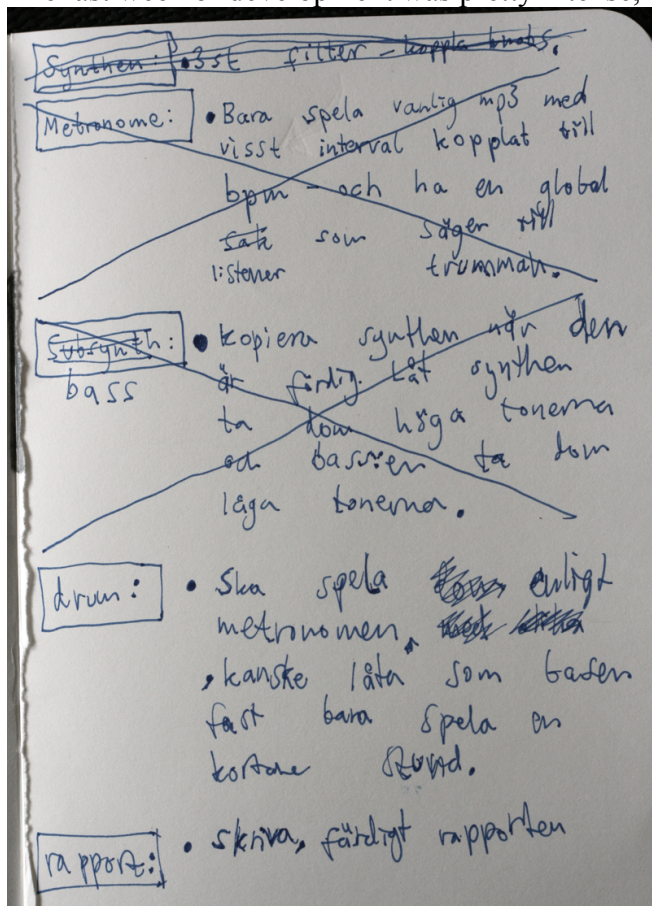 Synthen: • 3st filter - koppla knobs.
Metronome: • Bara spela vanlig mp3 med
visst interval kopplat till
bpm - och ha en global
sak som säger till
listener trumman.
Subsynth: • kopiera synthen när den
bass är färdig. Låt synthen
ta dom höga tonerna
och bassen ta dom
låga tonerna.
drum: • Ska spela enligt
metronomen.
• kanske låta som basen
fast bara spela en
kortare stund.
rapport: • skriva färdigt rapporten